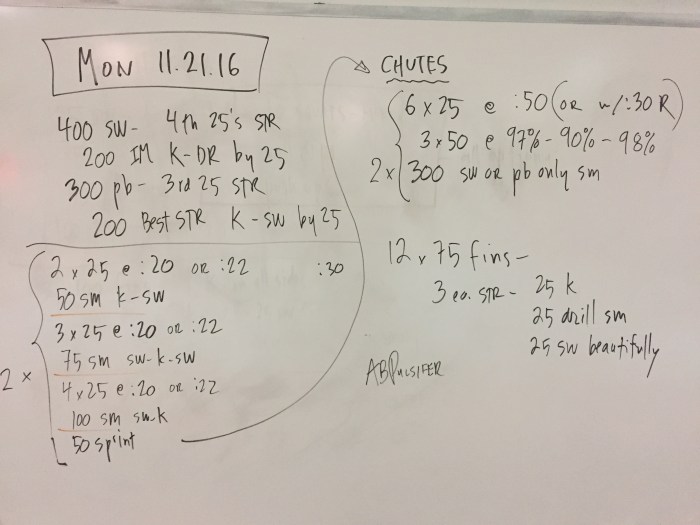 MON 11.21.16
400 SW- 4th 25's STR
200 IM K-DR by 25
300 pb- 3rd 25 STR
200 Best STR K-SW by 25
2 x 25 @ :20 OR :22 :30
50 sm K-SW
3 x 25 @ :20 OR :22
75 sm SW-K-SW
2 x
4 x 25 @ :20 OR :22
100 sm SW-K
50 sprint
CHUTES
6 x 25 @ :50 (OR w/:30 R)
3 x 50 @ 97% - 90% - 98%
2 x 300 SW OR pb only sm
12 x 75 fins-
3 ea. STR - 25 K
25 drill sm
25 SW beautifully
ABPULSIFER